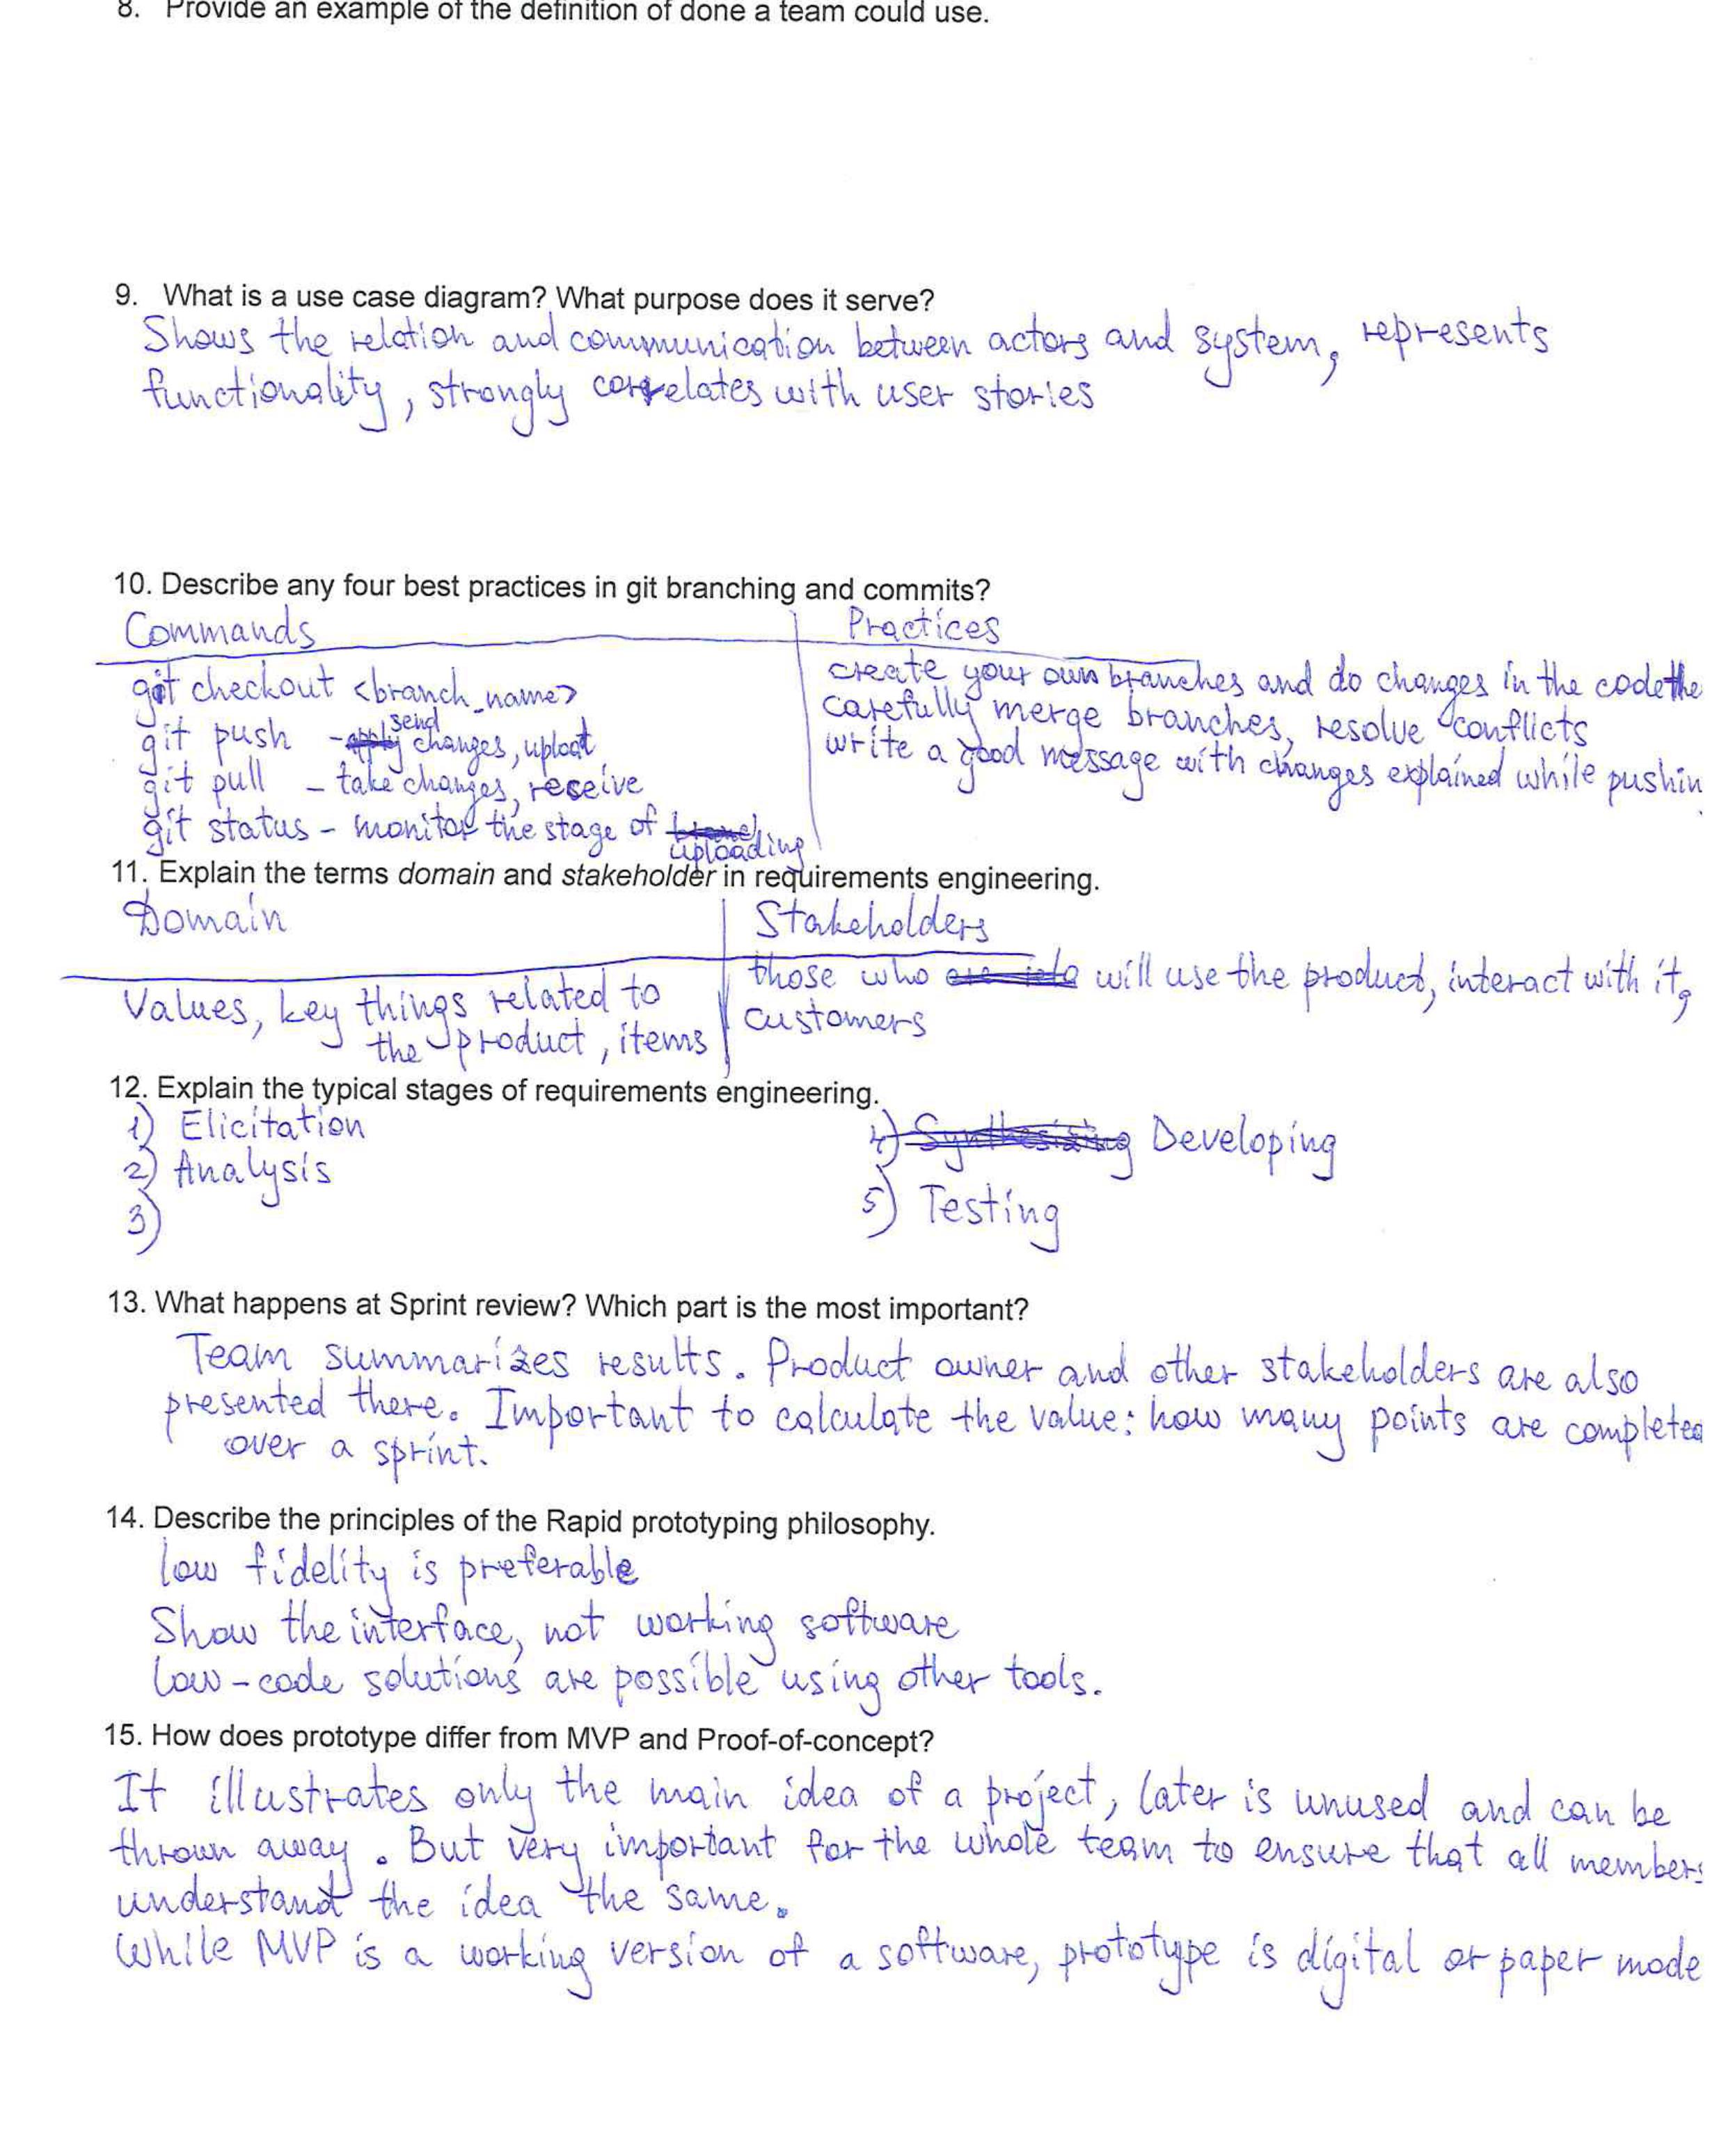 8. Provide an example of the definition of done a team could use.
9. What is a use case diagram? What purpose does it serve?
Shows the relation and communication between actors and system, represents
functionality, strongly correlates with user stories
10. Describe any four best practices in git branching and commits?
Commands
git checkout <branch_name>
git push - send changes, upload
git pull - take changes, receive
git status - monitor the stage of
uploading
Practices
create your own branches and do changes in the code the
carefully merge branches, resolve conflicts
write a good message with changes explained while pushin
11. Explain the terms domain and stakeholder in requirements engineering.
Domain
Values, key things related to
the product, items
Stakeholders
those who will use the product, interact with it,
customers
12. Explain the typical stages of requirements engineering.
1) Elicitation
2) Analysis
3)
4) Synthesizing Developing
5) Testing
13. What happens at Sprint review? Which part is the most important?
Team summarizes results. Product owner and other stakeholders are also
presented there. Important to calculate the value: how many points are completed
over a sprint.
14. Describe the principles of the Rapid prototyping philosophy.
low fidelity is preferable
Show the interface, not working software
Low-code solutions are possible using other tools.
15. How does prototype differ from MVP and Proof-of-concept?
It illustrates only the main idea of a project, later is unused and can be
thrown away. But very important for the whole team to ensure that all members
understand the idea the same.
While MVP is a working version of a software, prototype is digital or paper mode